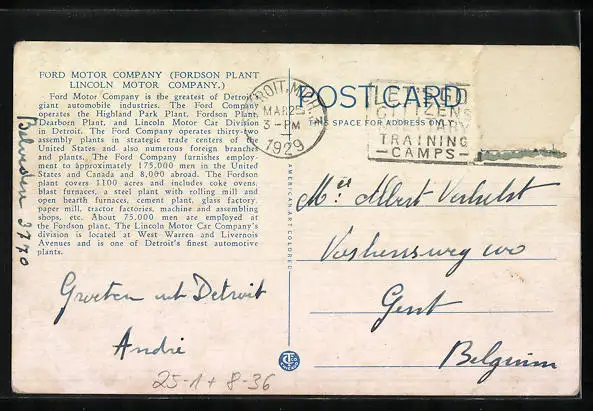 FORD MOTOR COMPANY (FORDSON PLANT
LINCOLN MOTOR COMPANY.)
Ford Motor Company is the greatest of Detroit's
giant automobile industries. The Ford Company
operates the Highland Park Plant, Fordson Plant,
Dearborn Plant, and Lincoln Motor Car Division
in Detroit. The Ford Company operates thirty-two
assembly plants in strategic trade centers of the
United States and also numerous foreign branches
and plants. The Ford Company furnishes employ-
ment to approximately 175,000 men in the United
States and Canada and 8,000 abroad. The Fordson
plant covers 1100 acres and includes coke ovens,
blast furnaces, a steel plant with rolling mill and
open hearth furnaces, cement plant, glass factory,
paper mill, tractor factories, machine and assembling
shops, etc. About 75,000 men are employed at
the Fordson plant. The Lincoln Motor Car Company's
division is located at West Warren and Livernois
Avenues and is one of Detroit's finest automotive
plants.
3770
Groeten uit Detroit
André
25-1+8-36
AMERICAN ART COLORED
DETROIT, MICH.
MAR 25
3-PM
1929
POST CARD
THIS SPACE FOR ADDRESS ONLY
CITIZENS
MILITARY
TRAINING
-CAMPS-
Albert Verhulst
Gent
Belgium